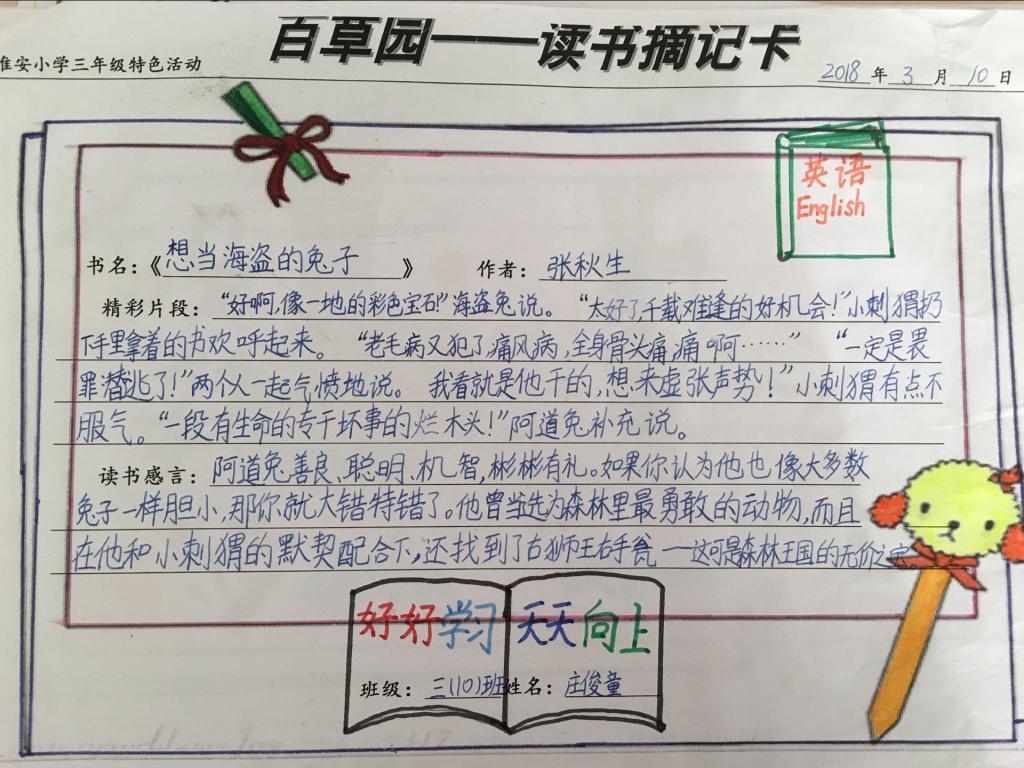 百草园——读书摘记卡
淮安小学三年级特色活动
2018年3月10日
英语
English
书名：《想当海盗的兔子》 作者：张秋生
精彩片段：“好啊，像一地的彩色宝石！”海盗兔说。 “太好了，千载难逢的好机会！”小刺猬扔
下手里拿着的书欢呼起来。 “老毛病又犯了，痛风病，全身骨头痛，痛啊……” “一定是畏
罪潜逃了！”两个人一起气愤地说。 我看就是他干的，想来虚张声势！”小刺猬有点不
服气。“一段有生命的专干坏事的烂木头！”阿道兔补充说。
读书感言：阿道兔善良、聪明、机智，彬彬有礼。如果你认为他也像大多数
兔子一样胆小，那你就大错特错了。他曾当选为森林里最勇敢的动物，而且
在他和小刺猬的默契配合下，还找到了古狮王右手瓮——这可是森林王国的无价之
好好学习 天天向上
班级：三(10)班姓名：庄俊童